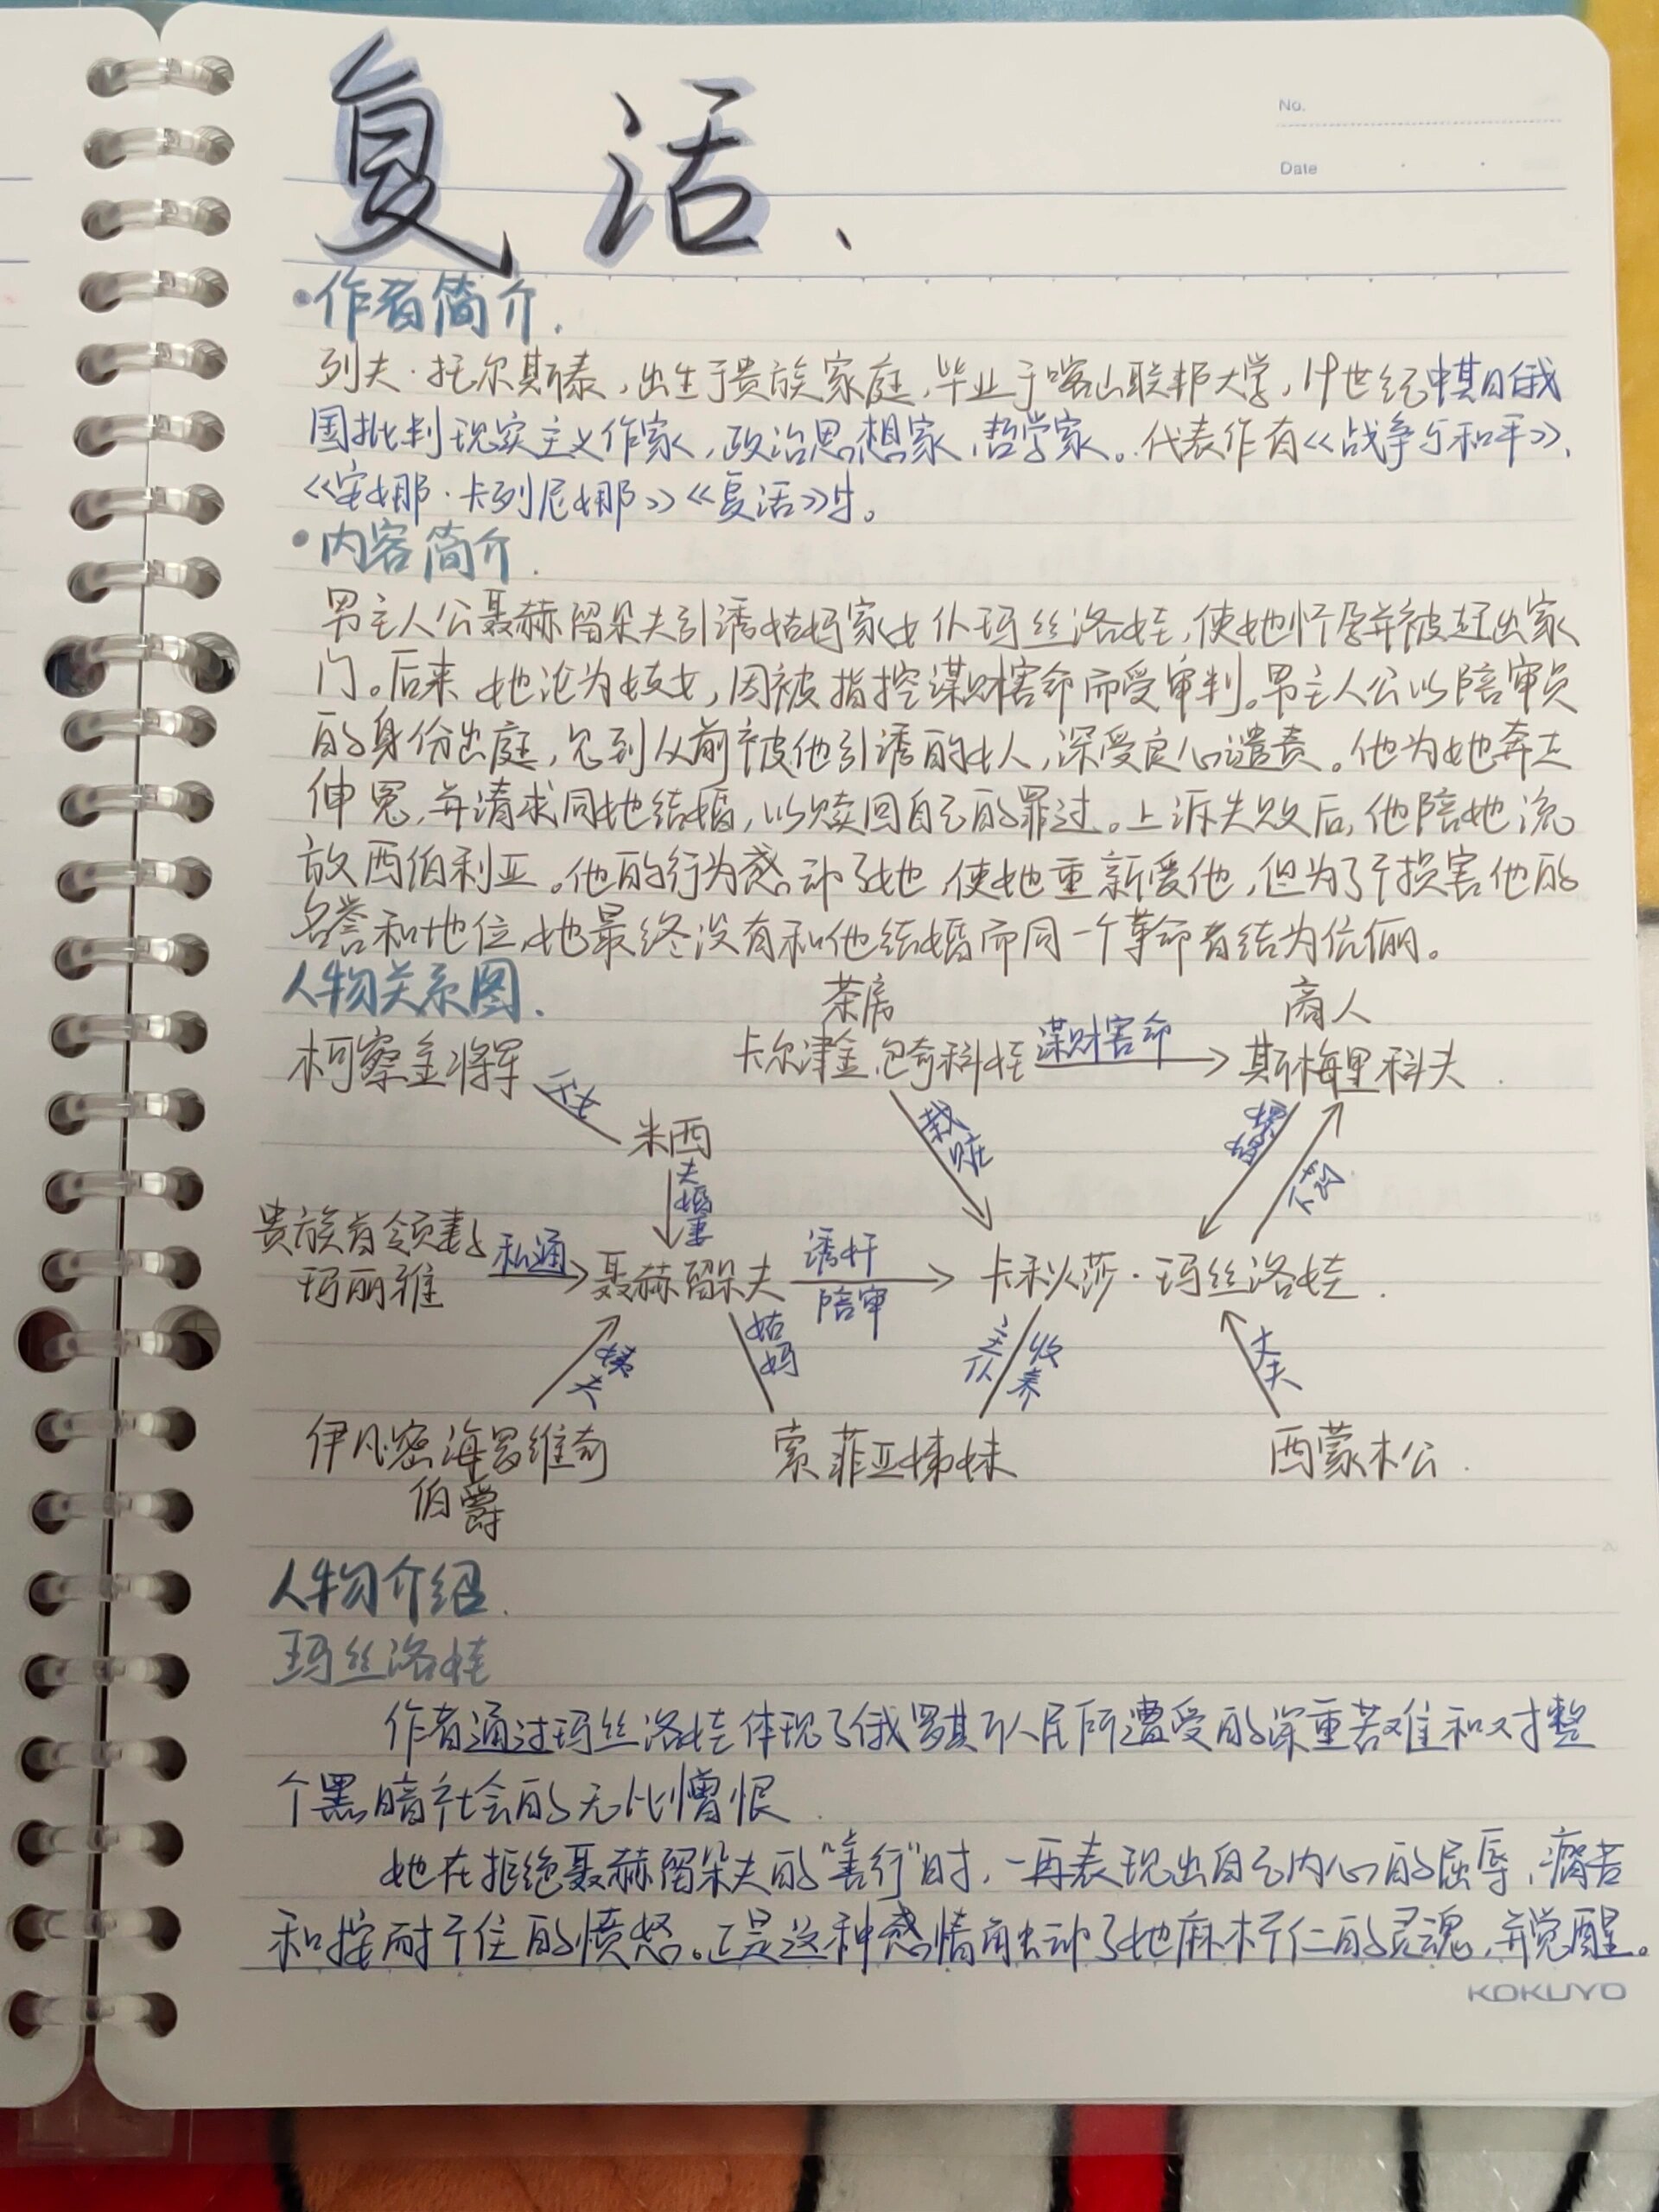 复活、
No.
Date
·作者简介.
列夫·托尔斯泰,出生于贵族家庭,毕业于喀山联邦大学,19世纪中期俄
国批判现实主义作家,政治思想家,哲学家。代表作有《战争与和平》、
《安娜·卡列尼娜》《复活》等。
·内容简介.
男主人公聂赫留朵夫引诱姑妈家女仆玛丝洛娃,使她怀孕并被赶出家
门。后来她沦为妓女,因被指控谋财害命而受审判。男主人公以陪审员
的身份出庭,见到从前被他引诱的女人,深受良心谴责。他为她奔走
伸冤,并请求同她结婚,以赎回自己的罪过。上诉失败后,他陪她流
放西伯利亚。他的行为感动了她,使她重新爱他,但为了不损害他的
名誉和地位,她最终没有和他结婚而同一个革命者结为伉俪。
人物关系图.
茶房 商人
柯察金将军 卡尔津金、包奇科娃 谋财害命 斯梅里科夫.
父女
米西
栽赃
下药
夫婚妻
贵族首领妻子 私通 聂赫留朵夫 诱奸 卡秋莎·玛丝洛娃.
玛丽雅 陪审
姨夫 姑妈 主仆 收养 丈夫
伊凡密海罗维奇 索菲亚姊妹 西蒙木公.
伯爵
人物介绍.
玛丝洛娃
作者通过玛丝洛娃体现了俄罗斯人民所遭受的深重苦难和对整
个黑暗社会的无比憎恨.
她在拒绝聂赫留朵夫的"善行"时,一再表现出自己内心的屈辱,痛苦
和按耐不住的愤怒。正是这种感情触动了她麻木不仁的灵魂,并觉醒。
KOKUYO